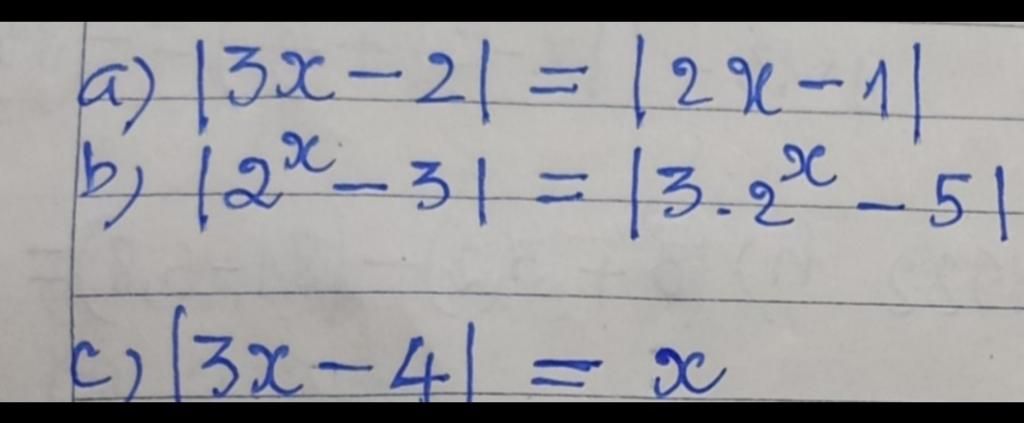 a) |3x - 2| = |2x - 1|
b) |2^x - 3| = |3.2^x - 5|
c) |3x - 4| = x